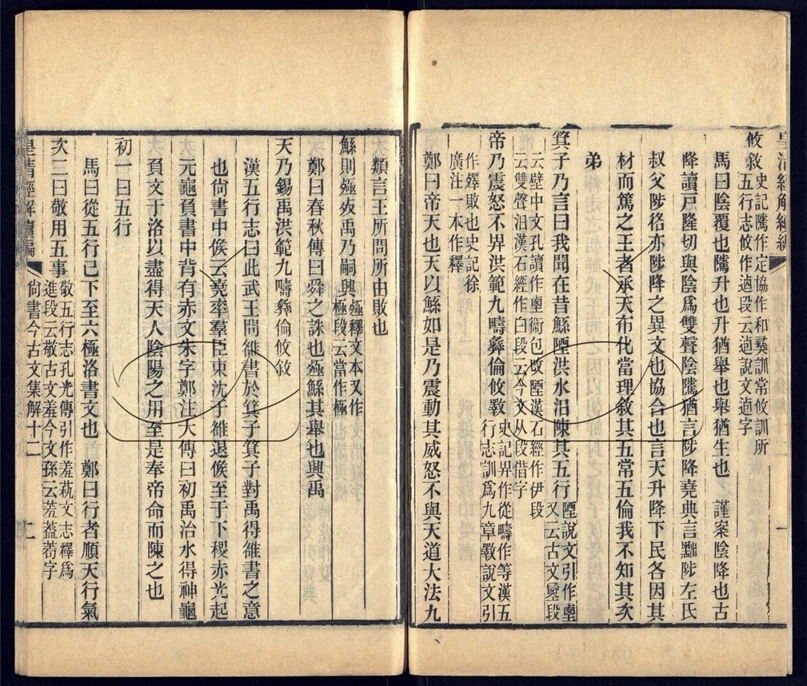 攸敘史記隲作定協作和彞訓常攸訓所
五行志攸作逌段云逌說文逌字
馬曰陰覆也隲升也升猶舉也舉猶生也　謹案陰降也古
降讀戸隆切與陰爲雙聲陰隲猶言陟降堯典言黜陟左氏
叔父陟恪亦陟降之異文也協合也言天升降下民各因其
材而篤之王者承天布化當理敘其五常五倫我不知其次
弟
箕子乃言曰我聞在昔鯀陻洪水汨陳其五行陻說文引作垔
又云古文𡎖段
云壁中文孔讀作垔衞包改陻漢石經作伊段
云雙聲汨漢石經作曰段云今文从段借字
帝乃震怒不畀洪範九疇彝倫攸斁史記畀作從疇作等漢五
行志訓爲九章斁說文引
作殬敗也史記徐
廣注一本作釋
鄭曰帝天也天以鯀如是乃震動其威怒不與天道大法九
類言王所問所由敗也
鯀則殛死禹乃嗣興殛釋文本又作
極段云當作極
鄭曰春秋傳曰舜之誅也殛鯀其舉也興禹
天乃錫禹洪範九疇彝倫攸敘
漢五行志曰此武王問雒書於箕子箕子對禹得雒書之意
也尙書中候云堯率羣臣東沈于雒退候至于下稷赤光起
元龜負書中背有赤文朱字鄭注大傳曰初禹治水得神龜
負文于洛以盡得天人陰陽之用至是奉帝命而陳之也
初一曰五行
馬曰從五行已下至六極洛書文也　鄭曰行者順天行氣
次二曰敬用五事敬五行志孔光傳引作羞蓺文志釋爲
進段云敬古文羞今文孫云羞葢茍字
皇清經解續編　尙書今古文集解十二　十一